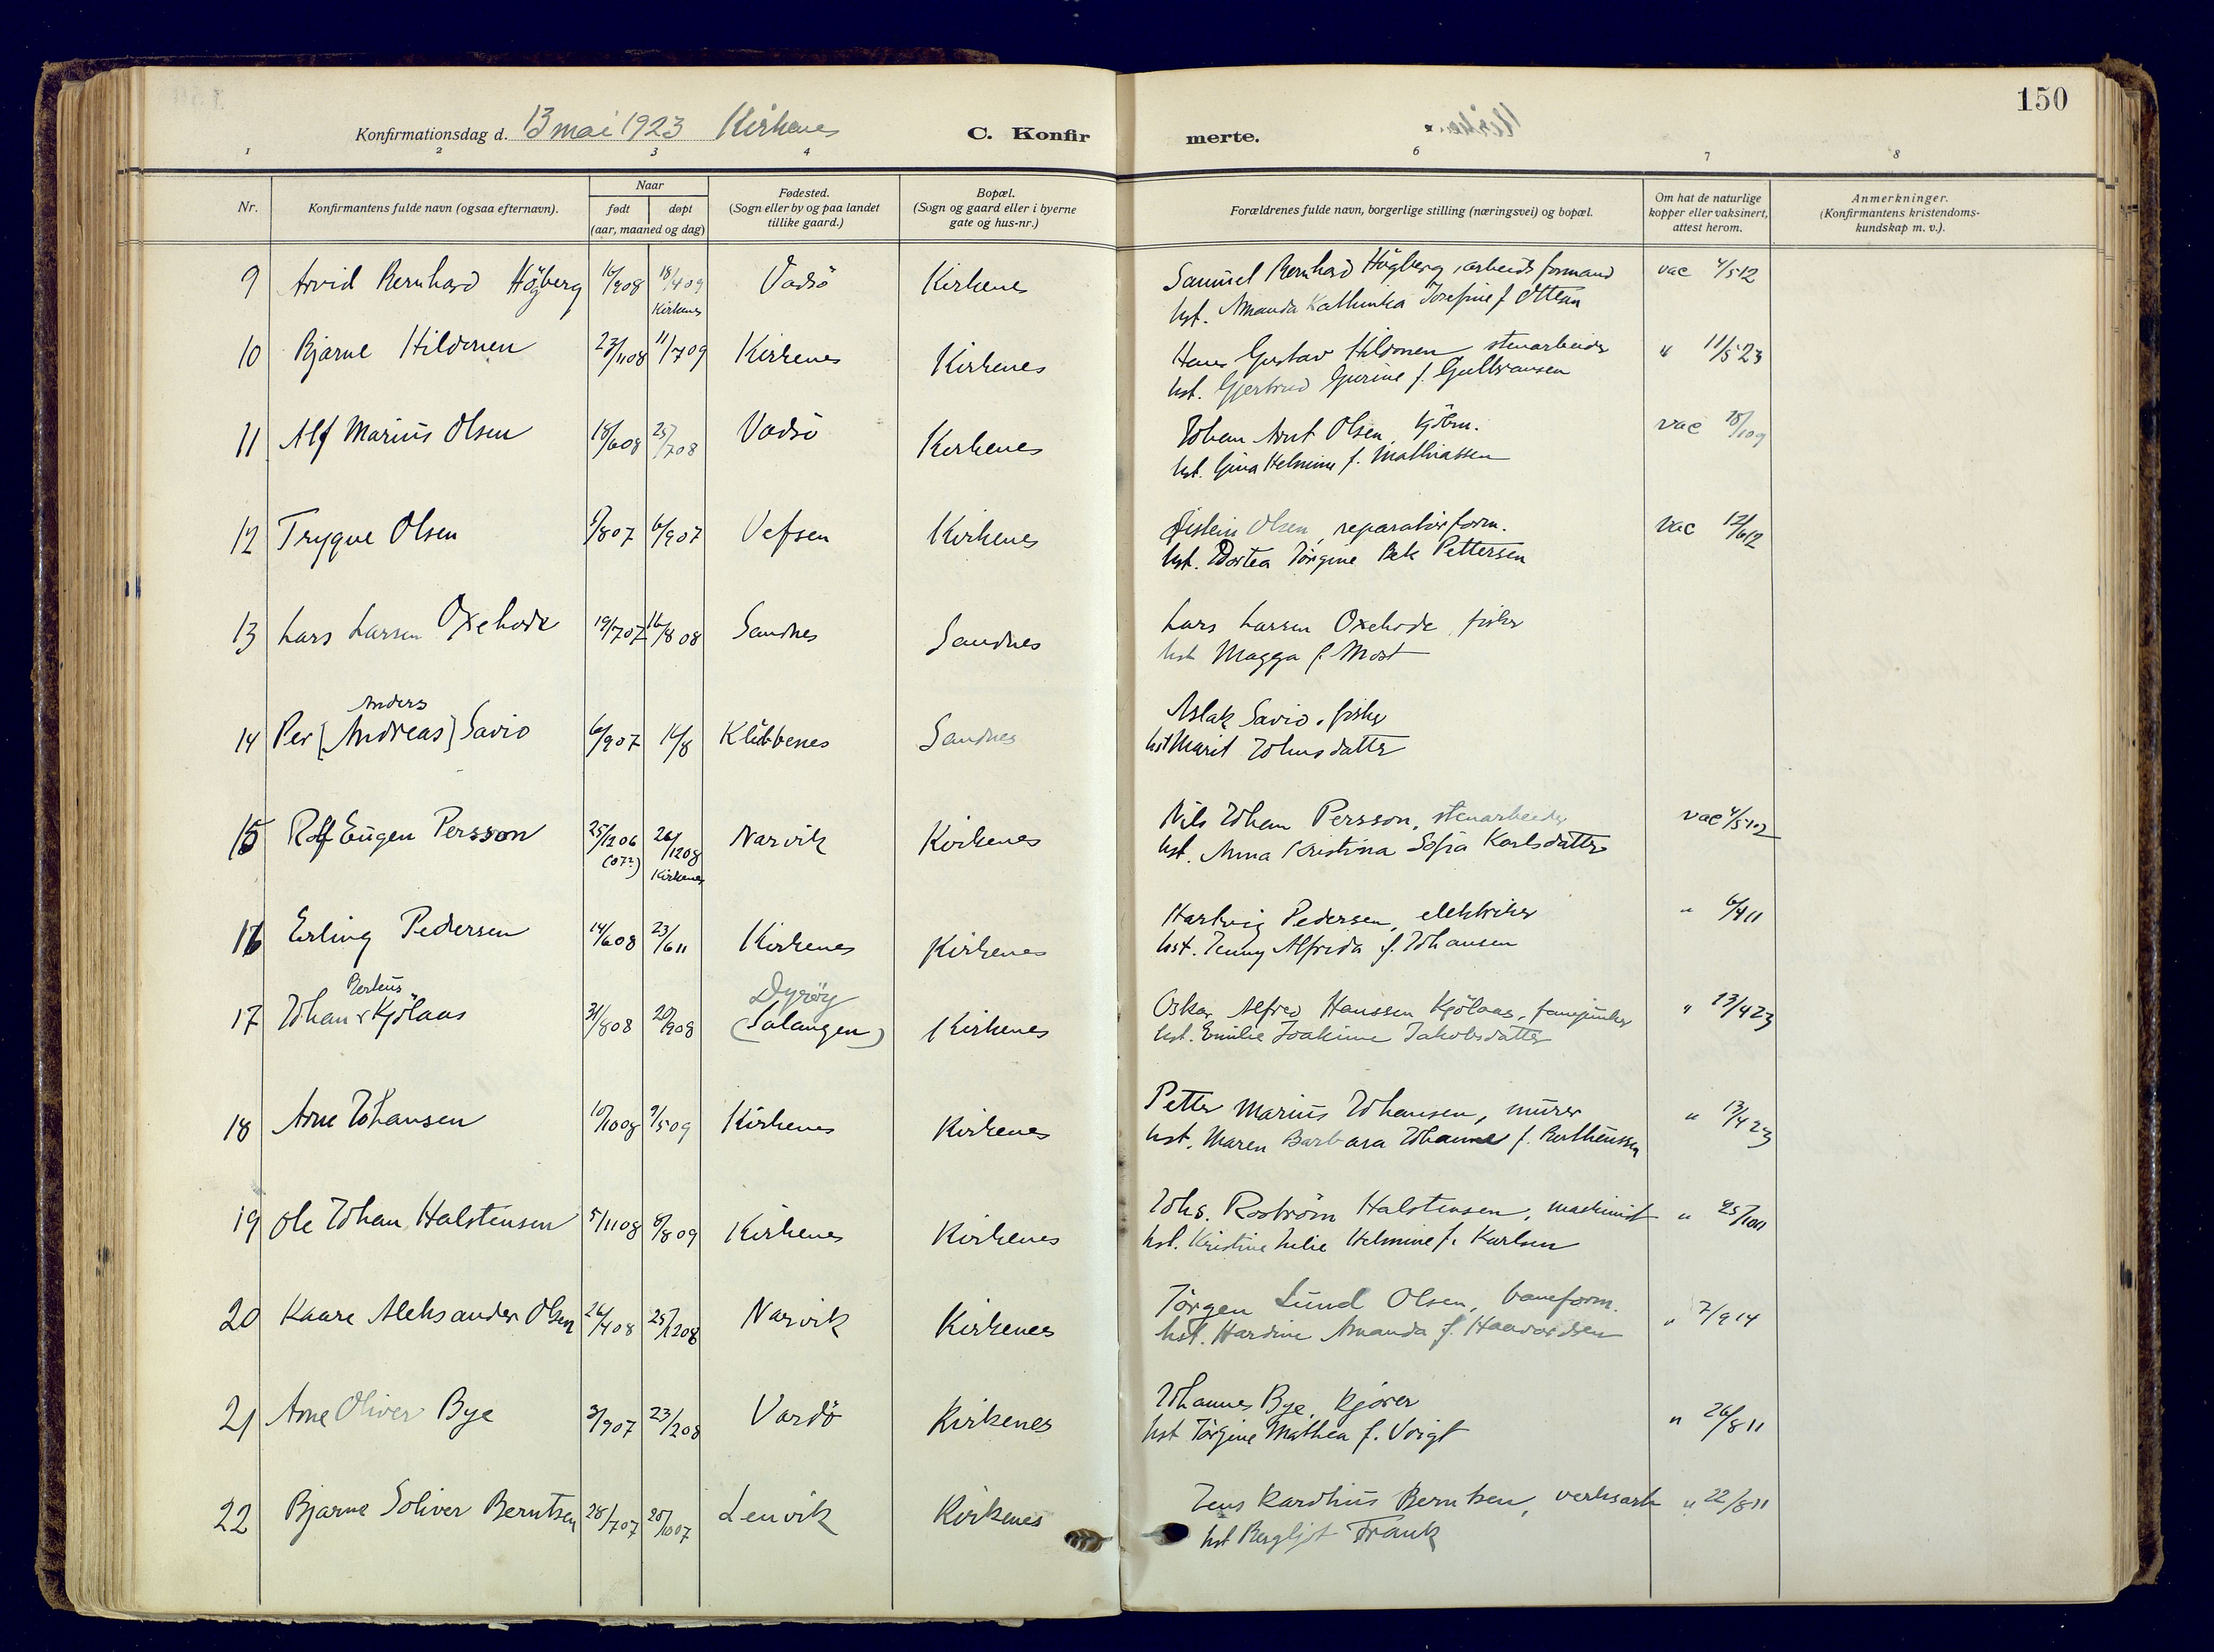 150
Konfirmationsdag d. 13 mai 1923 Kirkenes C. Konfir merte.
1 2 3 4 6 7 8
Nr. Konfirmantens fulde navn (ogsaa efternavn). Naar født døpt (aar, maaned og dag) Fødested. (Sogn eller by og paa landet tillike gaard.) Bopæl. (Sogn og gaard eller i byerne gate og hus-nr.) Forældrenes fulde navn, borgerlige stilling (næringsvei) og bopæl. Om hat de naturlige kopper eller vaksinert, attest herom. Anmerkninger. (Konfirmantens kristendoms-kundskap m. v.).
9 Arvid Bernhard Högberg 16/908 18/409 Kirkenes Vadsö Kirkenes Samuel Bernhard Högberg, arbeidsformand vac 4/512
hst. Amanda Kathinka Josefine f. Ottem
10 Bjarne Hildonen 23/1108 11/709 Kirkenes Kirkenes Hans Gustav Hildonen stenarbeider " 11/523
hst. Gjertrud Gurine f. Gulbransen
11 Alf Marius Olsen 18/608 25/708 Vadsö Kirkenes Johan Arnt Olsen, kjöbm. vac 18/109
hst. Gina Helmine f. Mathiassen
12 Trygve Olsen 9/807 6/907 Vefsen Kirkenes Öistein Olsen, reparatörform. vac 12/612
hst. Dortea Jörgine Bek Pettersen
13 Lars Larsen Oxehode 19/707 16/808 Sandnes Sandnes Lars Larsen Oxehode, fisker
hst Magga f. Most
Anders
14 Per [Andreas] Savio 6/907 14/8 Klubbenes Sandnes Aslak Savio, fisker
hst Marit Johnsdatter
15 Rolf Eugen Persson 25/1206 (07?) 26/1208 Kirkenes Narvik Kirkenes Nils Johan Persson, stenarbeider vac 4/512
hst. Anna Kristina Sofia Karlsdatter
16 Erling Pedersen 14/608 23/611 Kirkenes Kirkenes Hartvig Pedersen, elektriker " 6/411
hst. Jenny Alfrida f. Johansen
Berteus Dyröy
17 Johan Kjölaas 31/808 20/908 (Salangen) Kirkenes Oskar Alfred Hanssen Kjölaas, fanejunker " 13/423
hst. Emilie Joakime Jakobsdatter
18 Arne Johansen 10/1008 9/509 Kirkenes Kirkenes Petter Marius Johansen, murer " 13/423
hst. Maren Barbara Johanne f. Bertheussen
19 Ole Johan Halstensen 5/1108 8/809 Kirkenes Kirkenes Johs. Roström Halstensen, maskinist " 25/1011
hst. Kristine Julie Helmine f. Karlsen
20 Kaare Aleksander Olsen 26/408 25/1208 Narvik Kirkenes Jörgen Lund Olsen, baneform. " 7/914
hst. Hardine Amanda f. Haavardsen
21 Arne Oliver Bye 3/907 23/208 Vardö Kirkenes Johannes Bye, kjörer " 26/811
hst Jörgine Mathea f. Voigt
22 Bjarne Soliver Berntsen 28/707 20/1007 Lenvik Kirkenes Jens Kardius Berntsen, verksarb " 22/811
hst Bergljot Frank